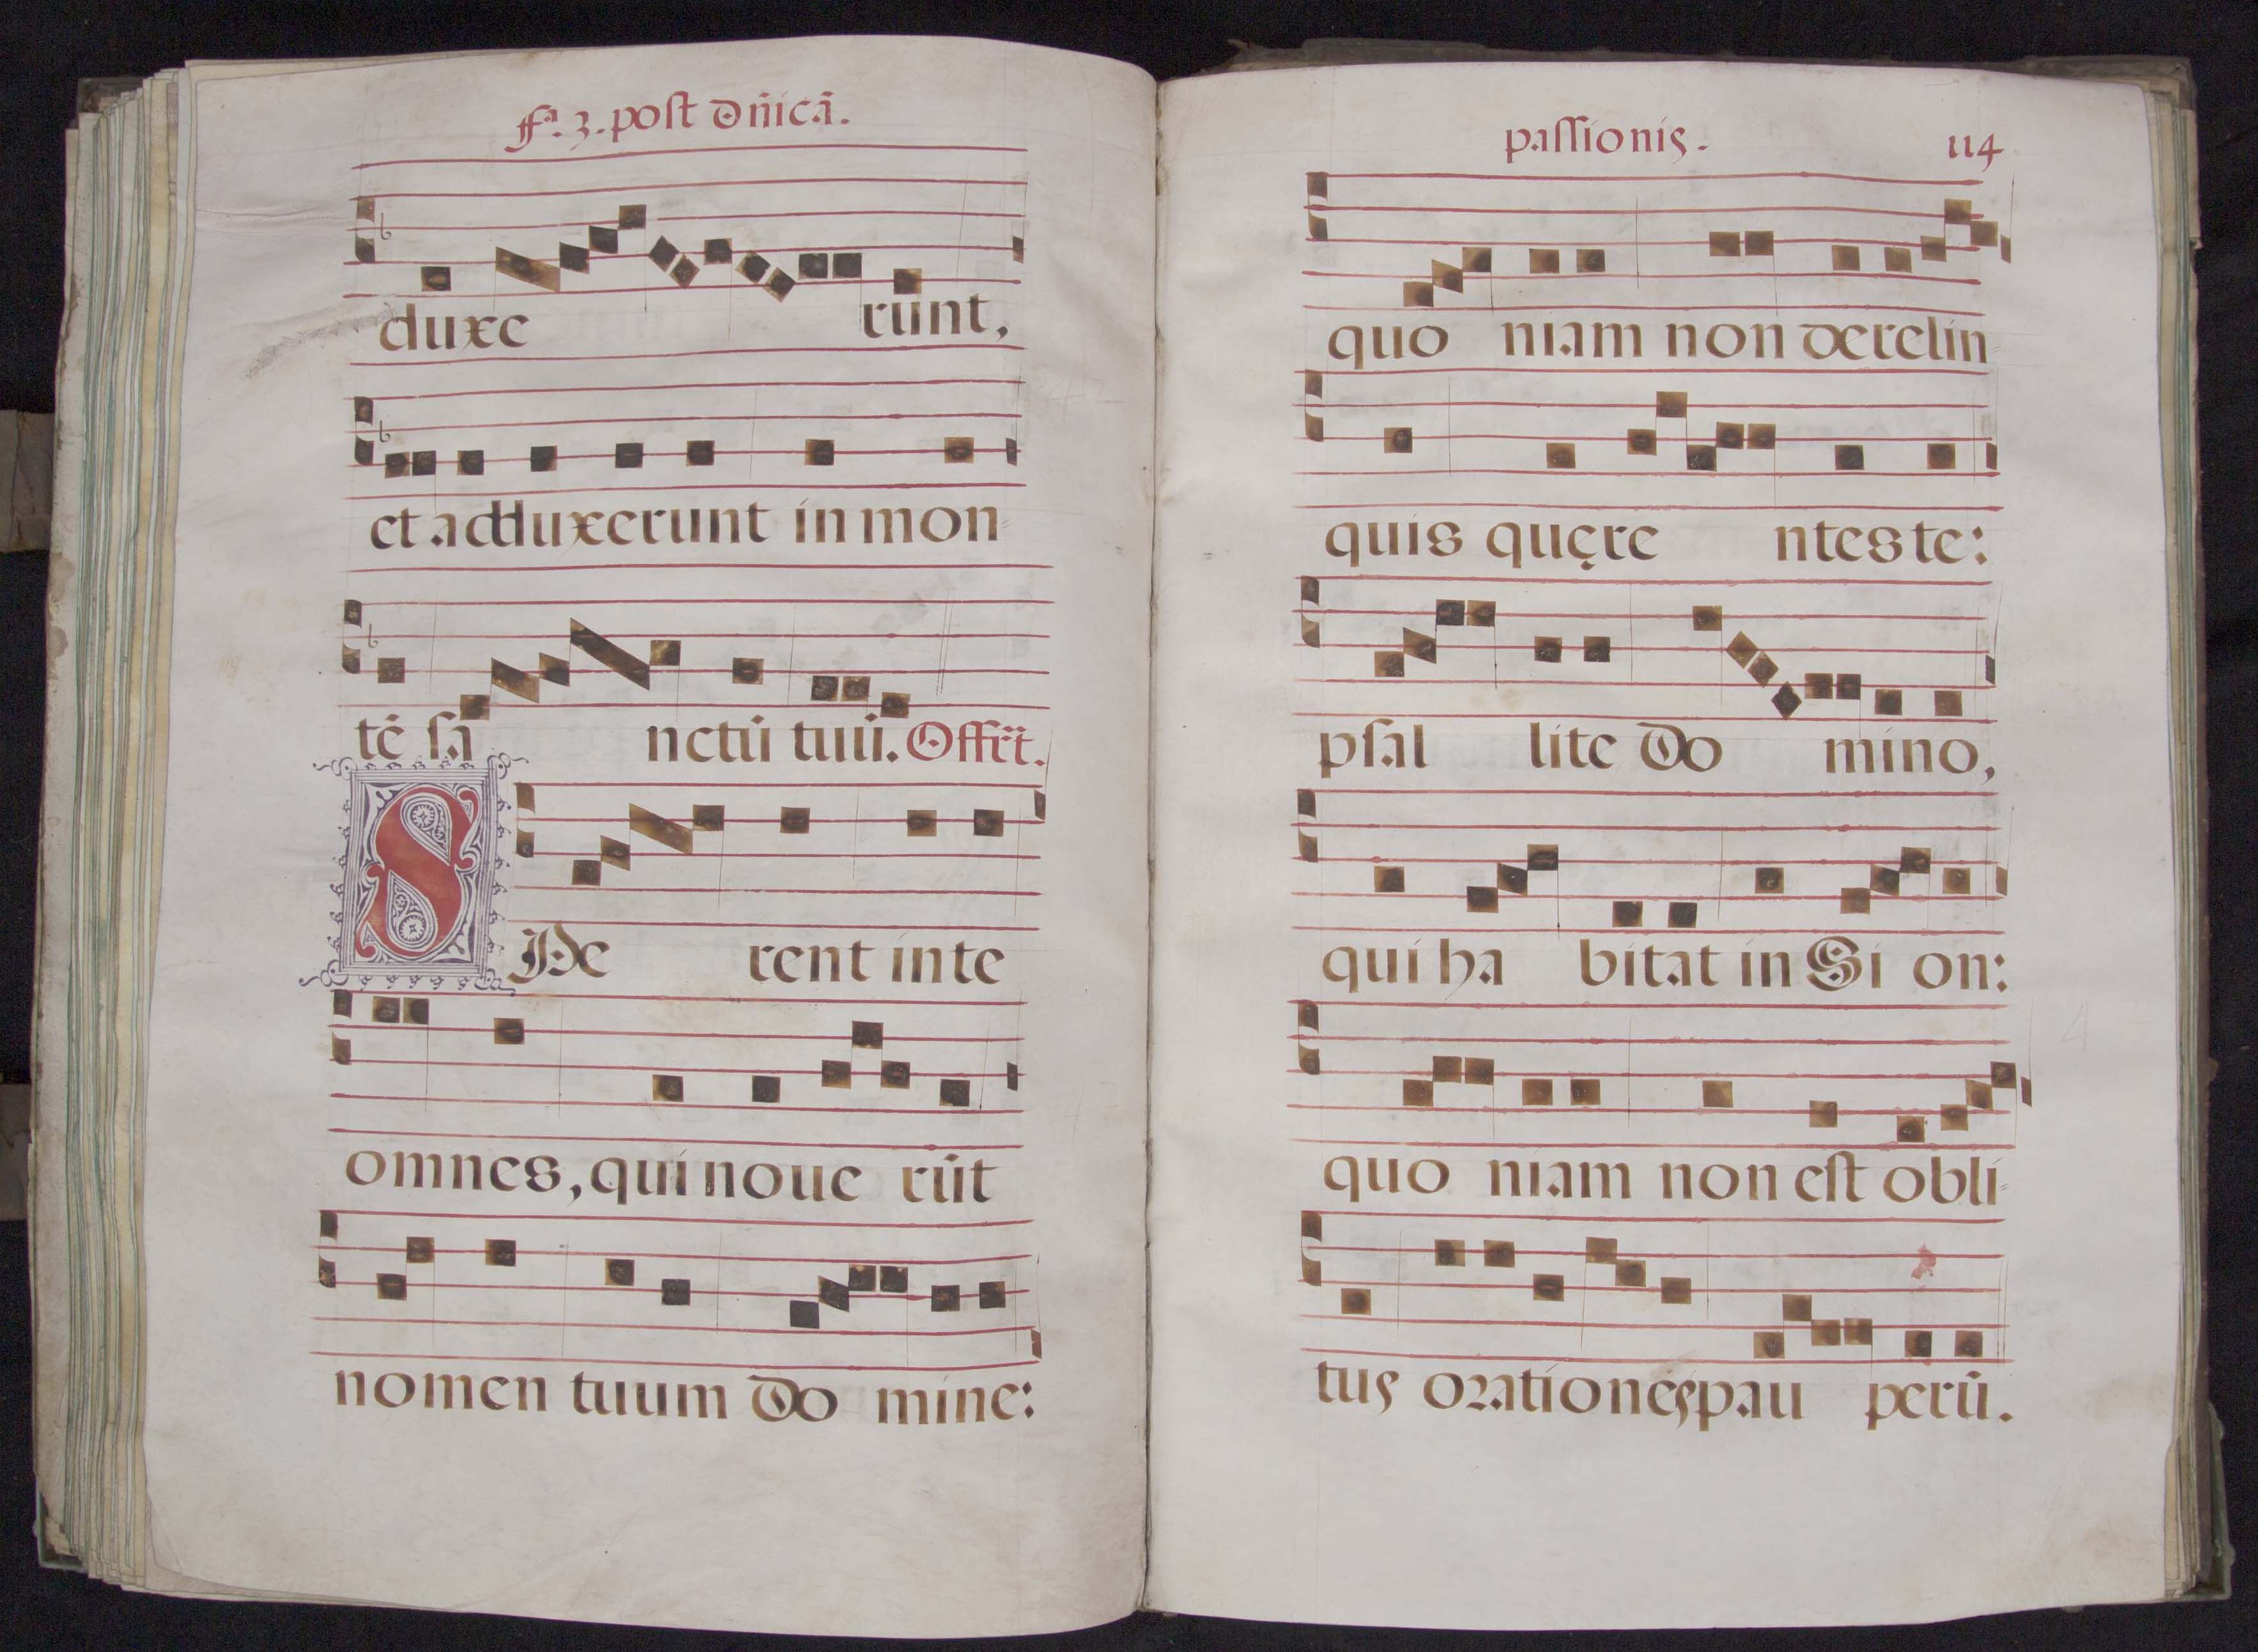 fᵃ. 3. post dn̄icā.
duxe runt,
et adduxerunt in mon
tē sā nctū tuū. Offr̄t.
SPe rent in te
omnes, qui noue rūt
nomen tuum Do mine:
passionis. 114
quo niam non derelin
quis quęre ntes te:
psal lite Do mino,
qui ha bitat in Si on:
quo niam non est obli
tus orationes pau perū.